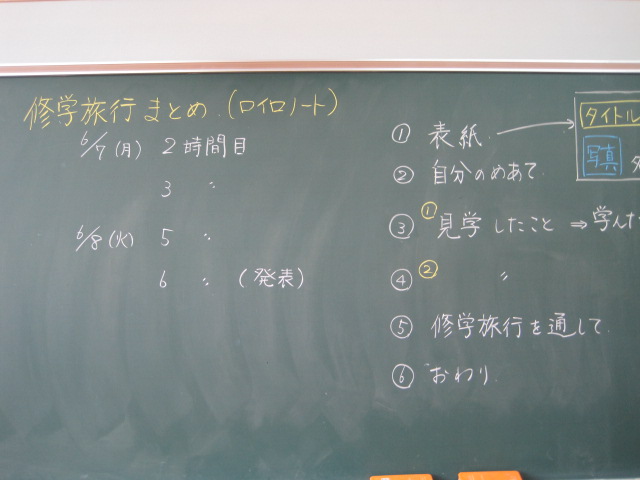 修学旅行まとめ.(ロイロノート)
6/7(月) 2時間目
3 〃
6/8(火) 5 〃
6 〃 (発表)
① 表紙
② 自分のめあて
③ ① 見学したこと ⇒ 学んだ
④ ② 〃
⑤ 修学旅行を通して
⑥ おわり
タイトル
写真